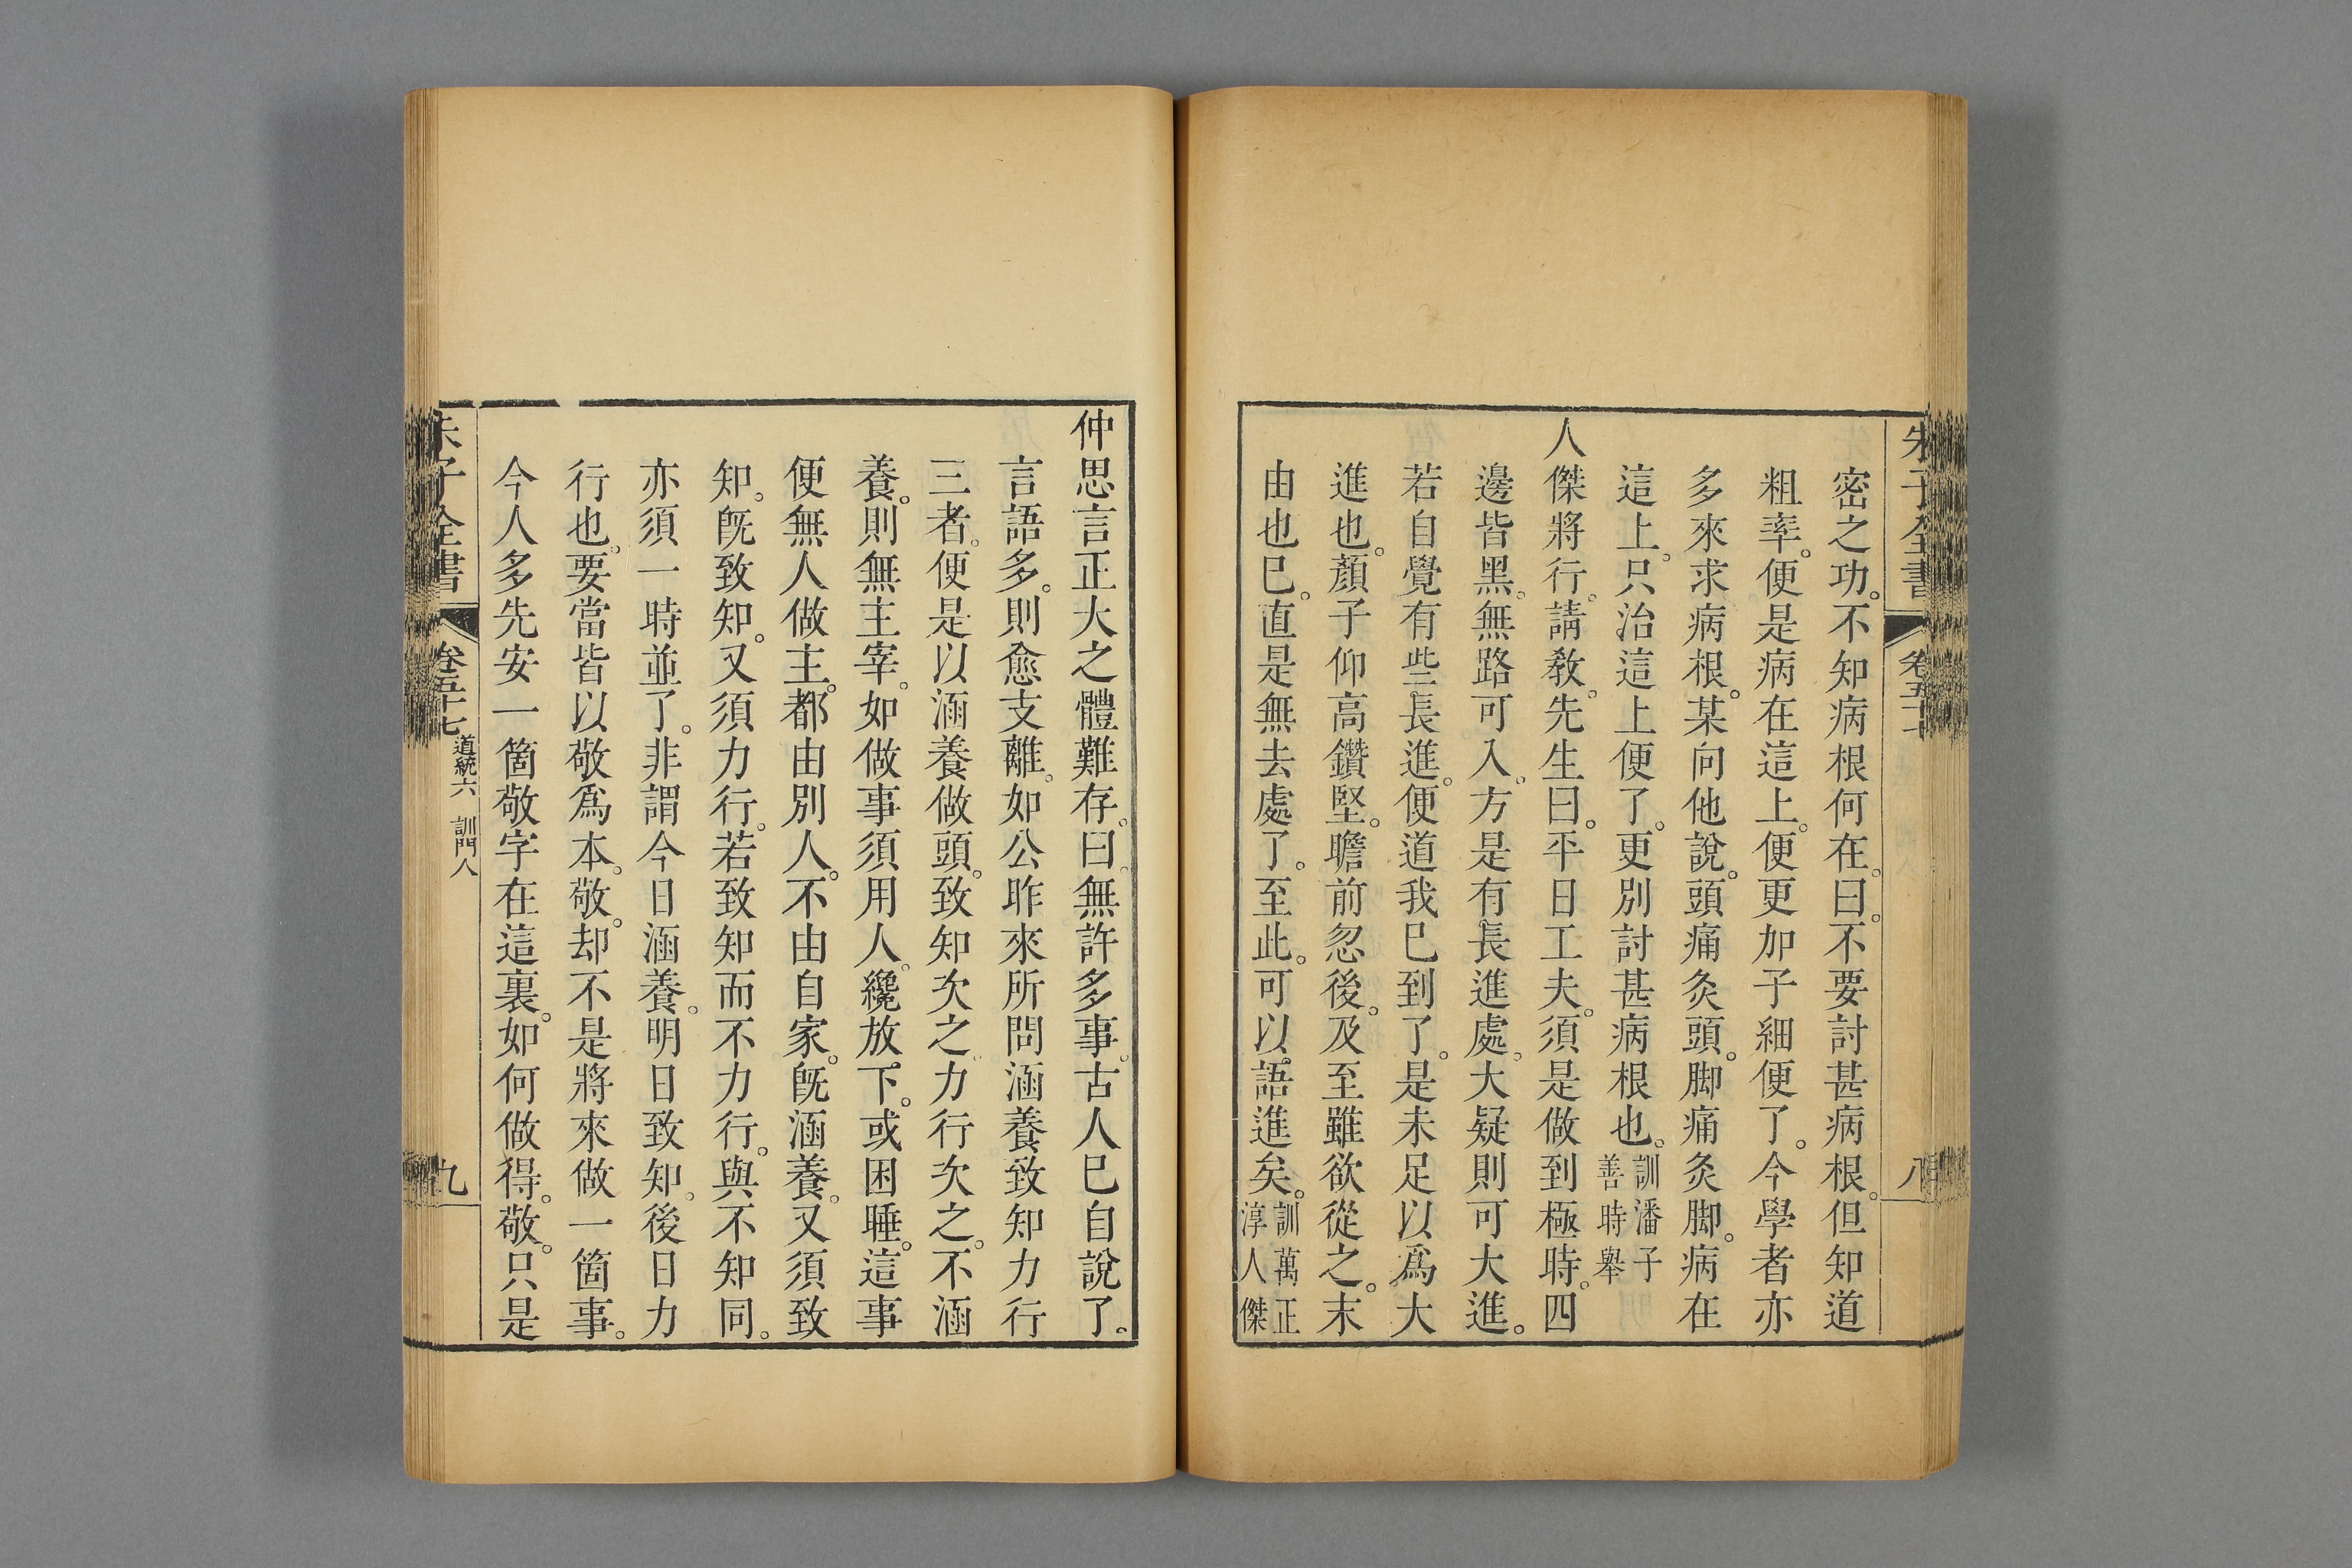 朱子全書 卷五十七 八
密之功。不知病根何在。曰。不要討甚病根。但知道
粗率。便是病在這上。便更加子細便了。今學者亦
多來求病根。某向他說。頭痛灸頭。脚痛灸脚。病在
這上。只治這上便了。更別討甚病根也。訓潘子善時舉
人傑將行。請敎。先生曰。平日工夫。須是做到極時。四
邊皆黑。無路可入。方是有長進處。大疑則可大進。
若自覺有些長進。便道我已到了。是未足以爲大
進也。顏子仰高鑽堅。瞻前忽後。及至雖欲從之。末
由也已。直是無去處了。至此。可以語進矣。訓萬正淳人傑
仲思言正大之體難存。曰。無許多事。古人已自說了。
言語多。則愈支離。如公昨來所問涵養致知力行
三者。便是以涵養做頭。致知次之。力行次之。不涵
養。則無主宰。如做事須用人。纔放下。或困睡。這事
便無人做主。都由別人。不由自家。旣涵養。又須致
知。旣致知。又須力行。若致知而不力行。與不知同。
亦須一時並了。非謂今日涵養。明日致知。後日力
行也。要當皆以敬爲本。敬。却不是將來做一箇事。
今人多先安一箇敬字在這裏。如何做得。敬。只是
朱子全書 卷五十七 道統六 訓門人 九